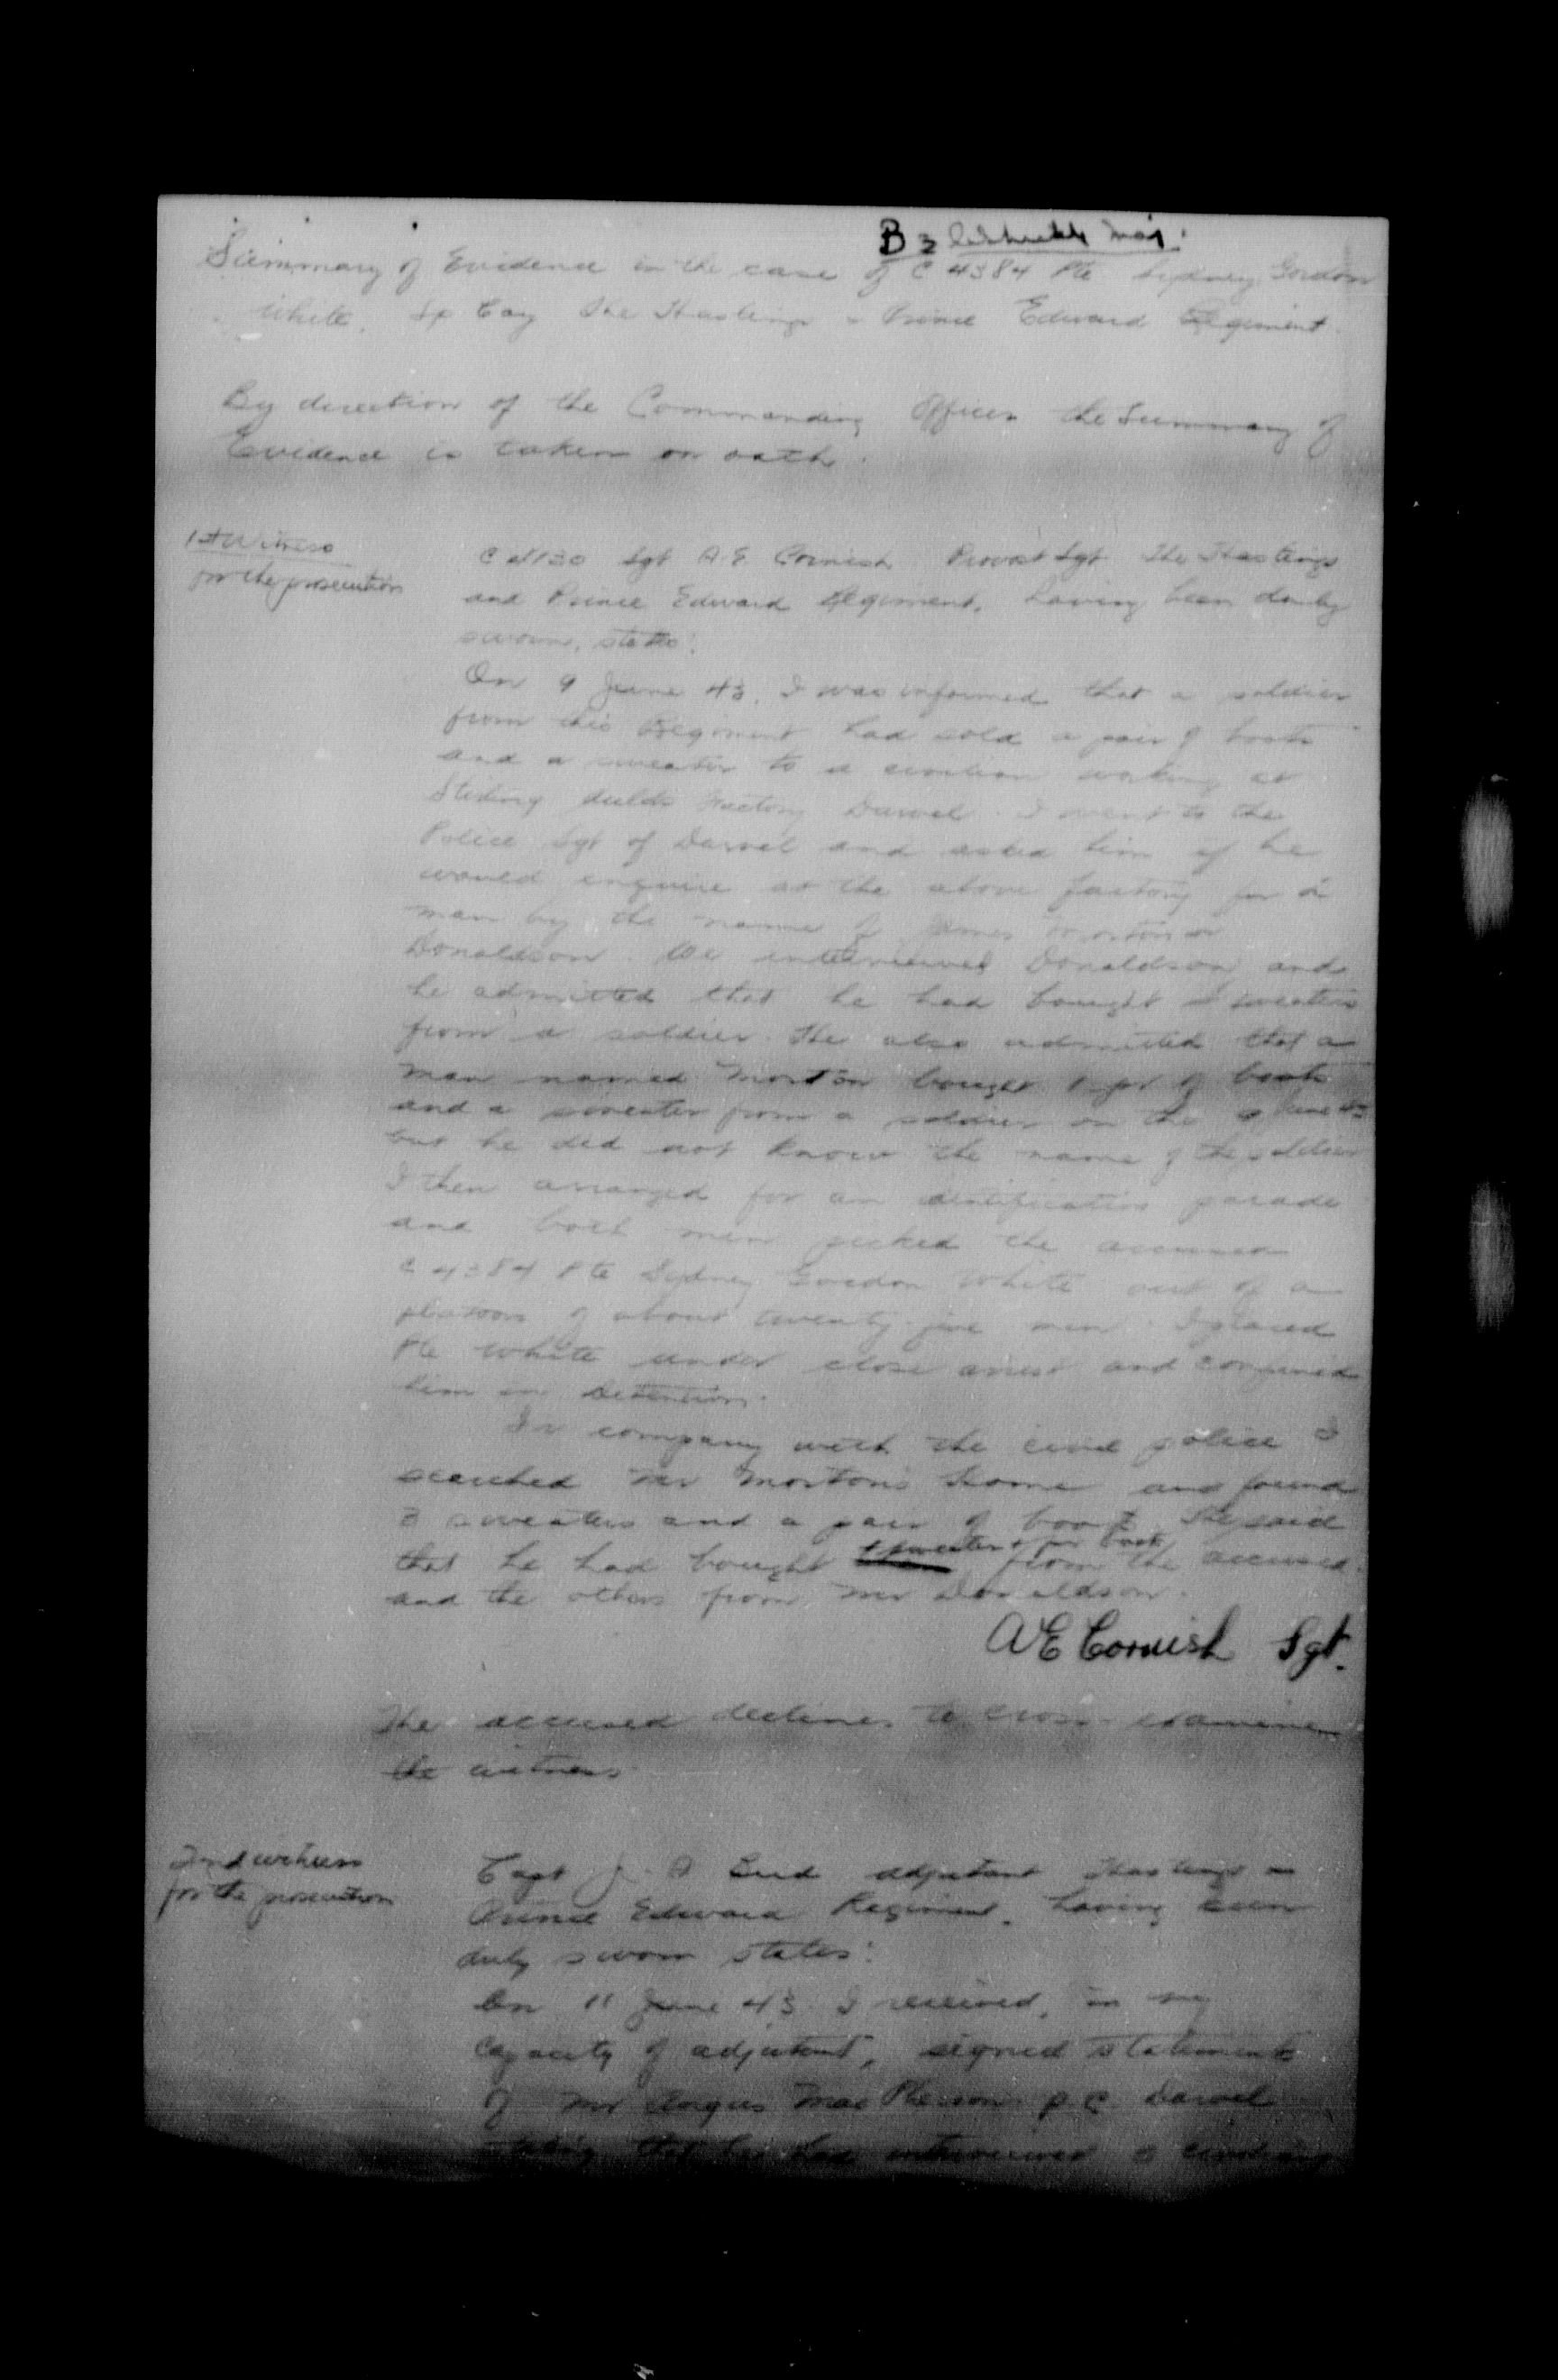 B 3 Maj.
Summary of Evidence in the case of C 4384 Pte Sydney Gordon
White, Sp Coy The Hastings & Prince Edward Regiment.
By direction of the Commanding Officer the Summary of
Evidence is taken on oath.
1st Witness
for the prosecution
Sgt A.E. Cornish Provost Sgt The Hastings
and Prince Edward Regiment, having been duly
sworn, states:
On 9 June 43, I was informed that a soldier
from this Regiment had sold a pair of boots
and a sweater to a civilian working at
Factory Darvel. I went to the
Police Sgt of Darvel and asked him if he
would enquire at the above factory for a
man by the name of James Morton or
Donaldson. We interviewed Donaldson and
he admitted that he had bought sweaters
from a soldier. He also admitted that a
man named Morton bought 1 pr of boots
and a sweater from a soldier on the June 43
but he did not know the name of the soldier
I then arranged for an identification parade
and both men picked the accused
C 4384 Pte Sydney Gordon White out of a
platoon of about twenty-five men. I placed
Pte White under close arrest and confined
him in Detention.
In company with the civil police I
searched Mr Morton's home and found
3 sweaters and a pair of boots. He said
that he had bought sweater & pr boots from the accused
and the others from Mr Donaldson.
A E Cornish Sgt.
The accused declines to cross-examine
the witness.
2nd witness
for the prosecution
Capt J. A. adjutant Hastings &
Prince Edward Regiment, having been
duly sworn states:
On 11 June 43 I received, in my
capacity of adjutant, signed statement
of Mr Angus MacPherson P.C. Darvel
stating that he had interviewed